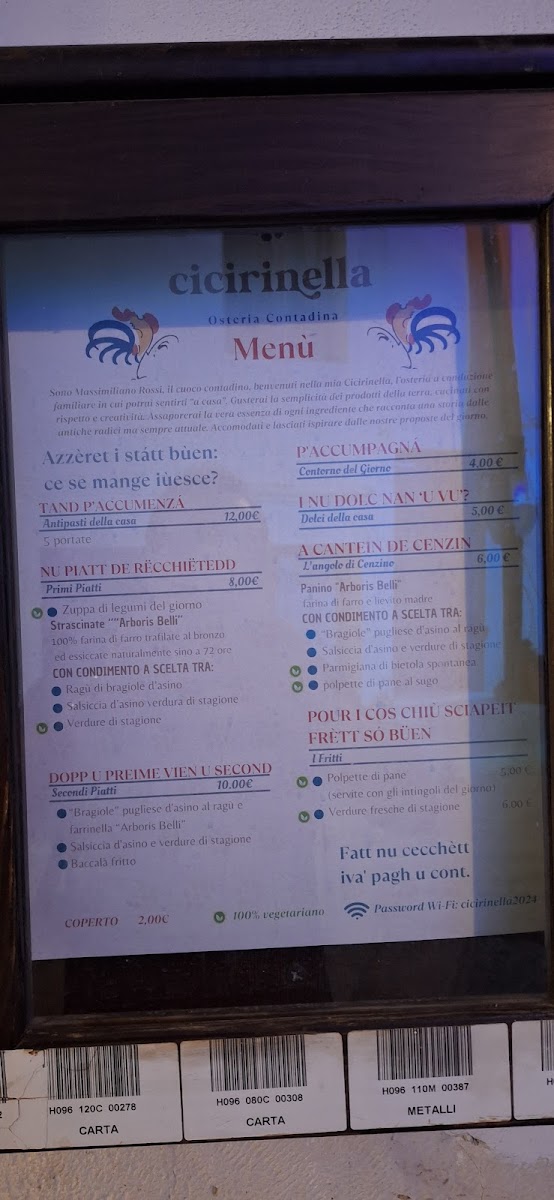 cicirinella
Osteria Contadina
Menù
Sono Massimiliano Rossi, il cuoco contadino, benvenuti nella mia Cicirinella, l'osteria a conduzione
familiare in cui potrai sentirti "a casa". Gusterai la semplicità dei prodotti della terra, cucinati con
rispetto e creatività. Assaporerai la vera essenza di ogni ingrediente che racconta una storia dalle
antiche radici ma sempre attuale. Accomodati e lasciati ispirare dalle nostre proposte del giorno.
Azzèret i státt bùen:
ce se mange iùesce?
TAND P'ACCUMENZÁ
Antipasti della casa 12,00€
5 portate
NU PIATT DE RËCCHIËTEDD
Primi Piatti 8,00€
Zuppa di legumi del giorno
Strascinate ""Arboris Belli"
100% farina di farro trafilate al bronzo
ed essiccate naturalmente sino a 72 ore
CON CONDIMENTO A SCELTA TRA:
Ragù di bragiole d'asino
Salsiccia d'asino verdura di stagione
Verdure di stagione
DOPP U PREIME VIEN U SECOND
Secondi Piatti 10.00€
"Bragiole" pugliese d'asino al ragù e
farrinella "Arboris Belli"
Salsiccia d'asino e verdure di stagione
Baccalà fritto
COPERTO 2,00€
P'ACCUMPAGNÁ
Contorno del Giorno 4,00 €
I NU DOLC NAN 'U VU'?
Dolci della casa 5,00 €
A CANTEIN DE CENZIN
L'angolo di Cenzino 6,00 €
Panino "Arboris Belli"
farina di farro e lievito madre
CON CONDIMENTO A SCELTA TRA:
"Bragiole" pugliese d'asino al ragù
Salsiccia d'asino e verdure di stagione
Parmigiana di bietola spontanea
polpette di pane al sugo
POUR I COS CHIÙ SCIAPÈIT
FRÈTT SÓ BÜEN
I Fritti
Polpette di pane 5,00 €
(servite con gli intingoli del giorno)
Verdure fresche di stagione 6,00 €
Fatt nu cecchètt
iva' pagh u cont.
100% vegetariano
Password Wi-Fi: cicirinella2024
H096 120C 00278
CARTA
H096 080C 00308
CARTA
H096 110M 00387
METALLI